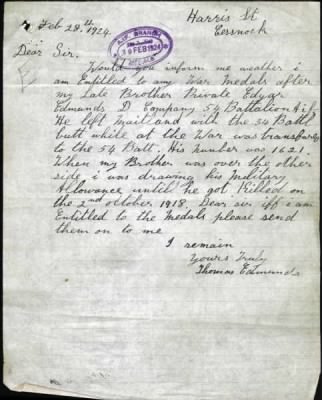 Harris St
Cessnock
Feb 28th 1924
Dear Sir.
Would you inform me weather i
am Entitled to any War Medals after
my Late Brother Private Edgar
Edmunds D Company 54 Battalion A.i.f.
He left Maitland with the 34 Batt,
butt while at the War was transfured
to the 54 Batt. His number was 1621.
When my Brother was over the other
side, i was drawing his Military
Allowance until he got Killed on
the 2nd October 1918. Dear sir iff i am
Entitled to the Medals please send
them on to me
I remain
Yours Truly
Thomas Edmunds